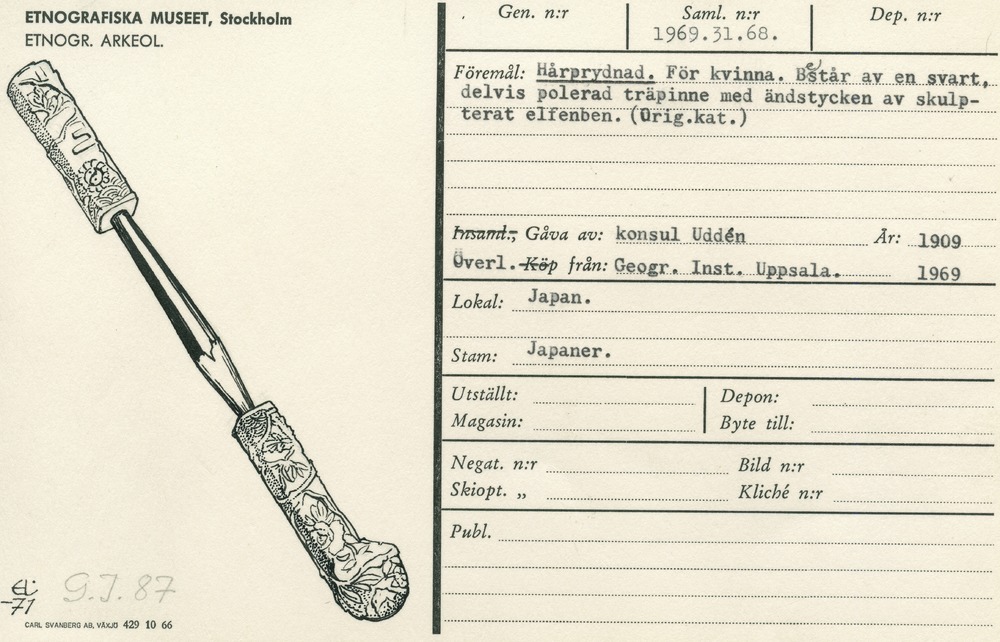 ETNOGRAFISKA MUSEET, Stockholm
ETNOGR. ARKEOL.
Gen. n:r
Saml. n:r
1969.31.68.
Dep. n:r
Föremål: Hårprydnad. För kvinna. Består av en svart,
delvis polerad träpinne med ändstycken av skulp-
terat elfenben. (Orig.kat.)
Insaml.; Gåva av: konsul Uddén År: 1909
Överl. Köp från: Geogr. Inst. Uppsala. 1969
Lokal: Japan.
Stam: Japaner.
Utställt: Depon:
Magasin: Byte till:
Negat. n:r Bild n:r
Skiopt. „ Kliché n:r
Publ.
-71
G.I. 87
CARL SVANBERG AB, VÄXJÖ 429 10 66